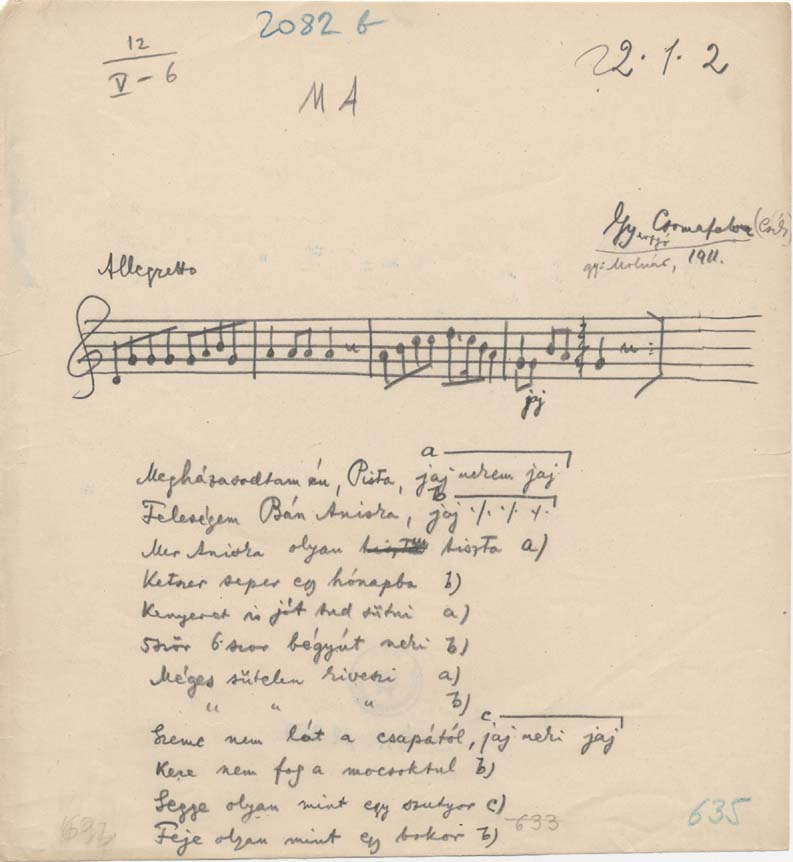 2082 b
12
V - 6
M A
22. 1. 2
Gyergyó Csomafalva (Csík)
gy: Molnár, 1911.
Allegretto
jaj
a
Megházasodtam én, Pista, jaj nekem jaj
b
Feleségem Bán Aniska, jaj ./. ./. ./.
Mer Aniska olyan tiszta a)
Ketszer seper egy hónapba b)
Kenyeret is jót tud sütni a)
5ször 6-szor bégyút neki b)
Méges sütelen kiveszi a)
" " " b)
c
Szeme nem lát a csapától, jaj neki jaj
Keze nem fog a mocsoktul b)
Segge olyan mint egy szutyor c)
Feje olyan mint egy bokor b)
633
635